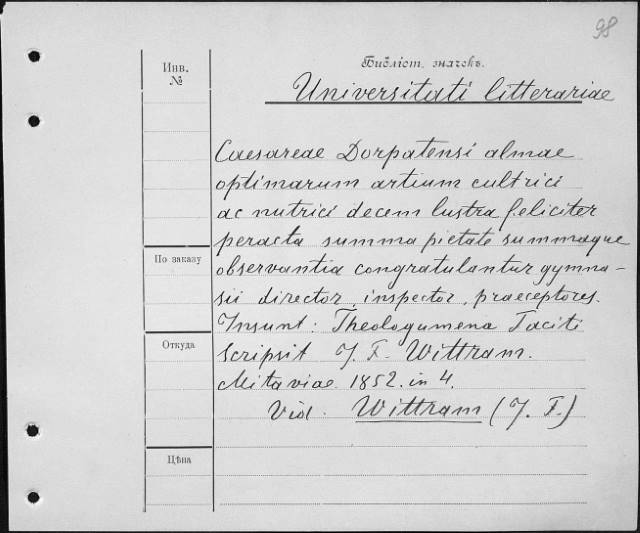 98
Инв.
№
Библіот. значекъ.
Universitati litterariae
Caesareae Dorpatensi almae
optimarum artium cultrici
ac nutrici decem lustra feliciter
peracta summa pietate summaque
По заказу
observantia congratulantur gymna-
sii director, inspector, praeceptores.
Insunt: Theologumena Taciti
Откуда
scripsit J. F. Wittram.
Mitaviae 1852. in 4.
Vid. Wittram (J. F.)
Цѣна